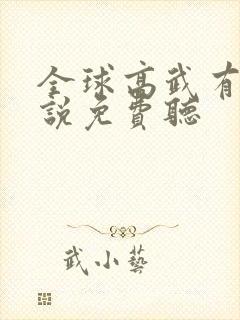 全球高武有
說免費聽
武小藝